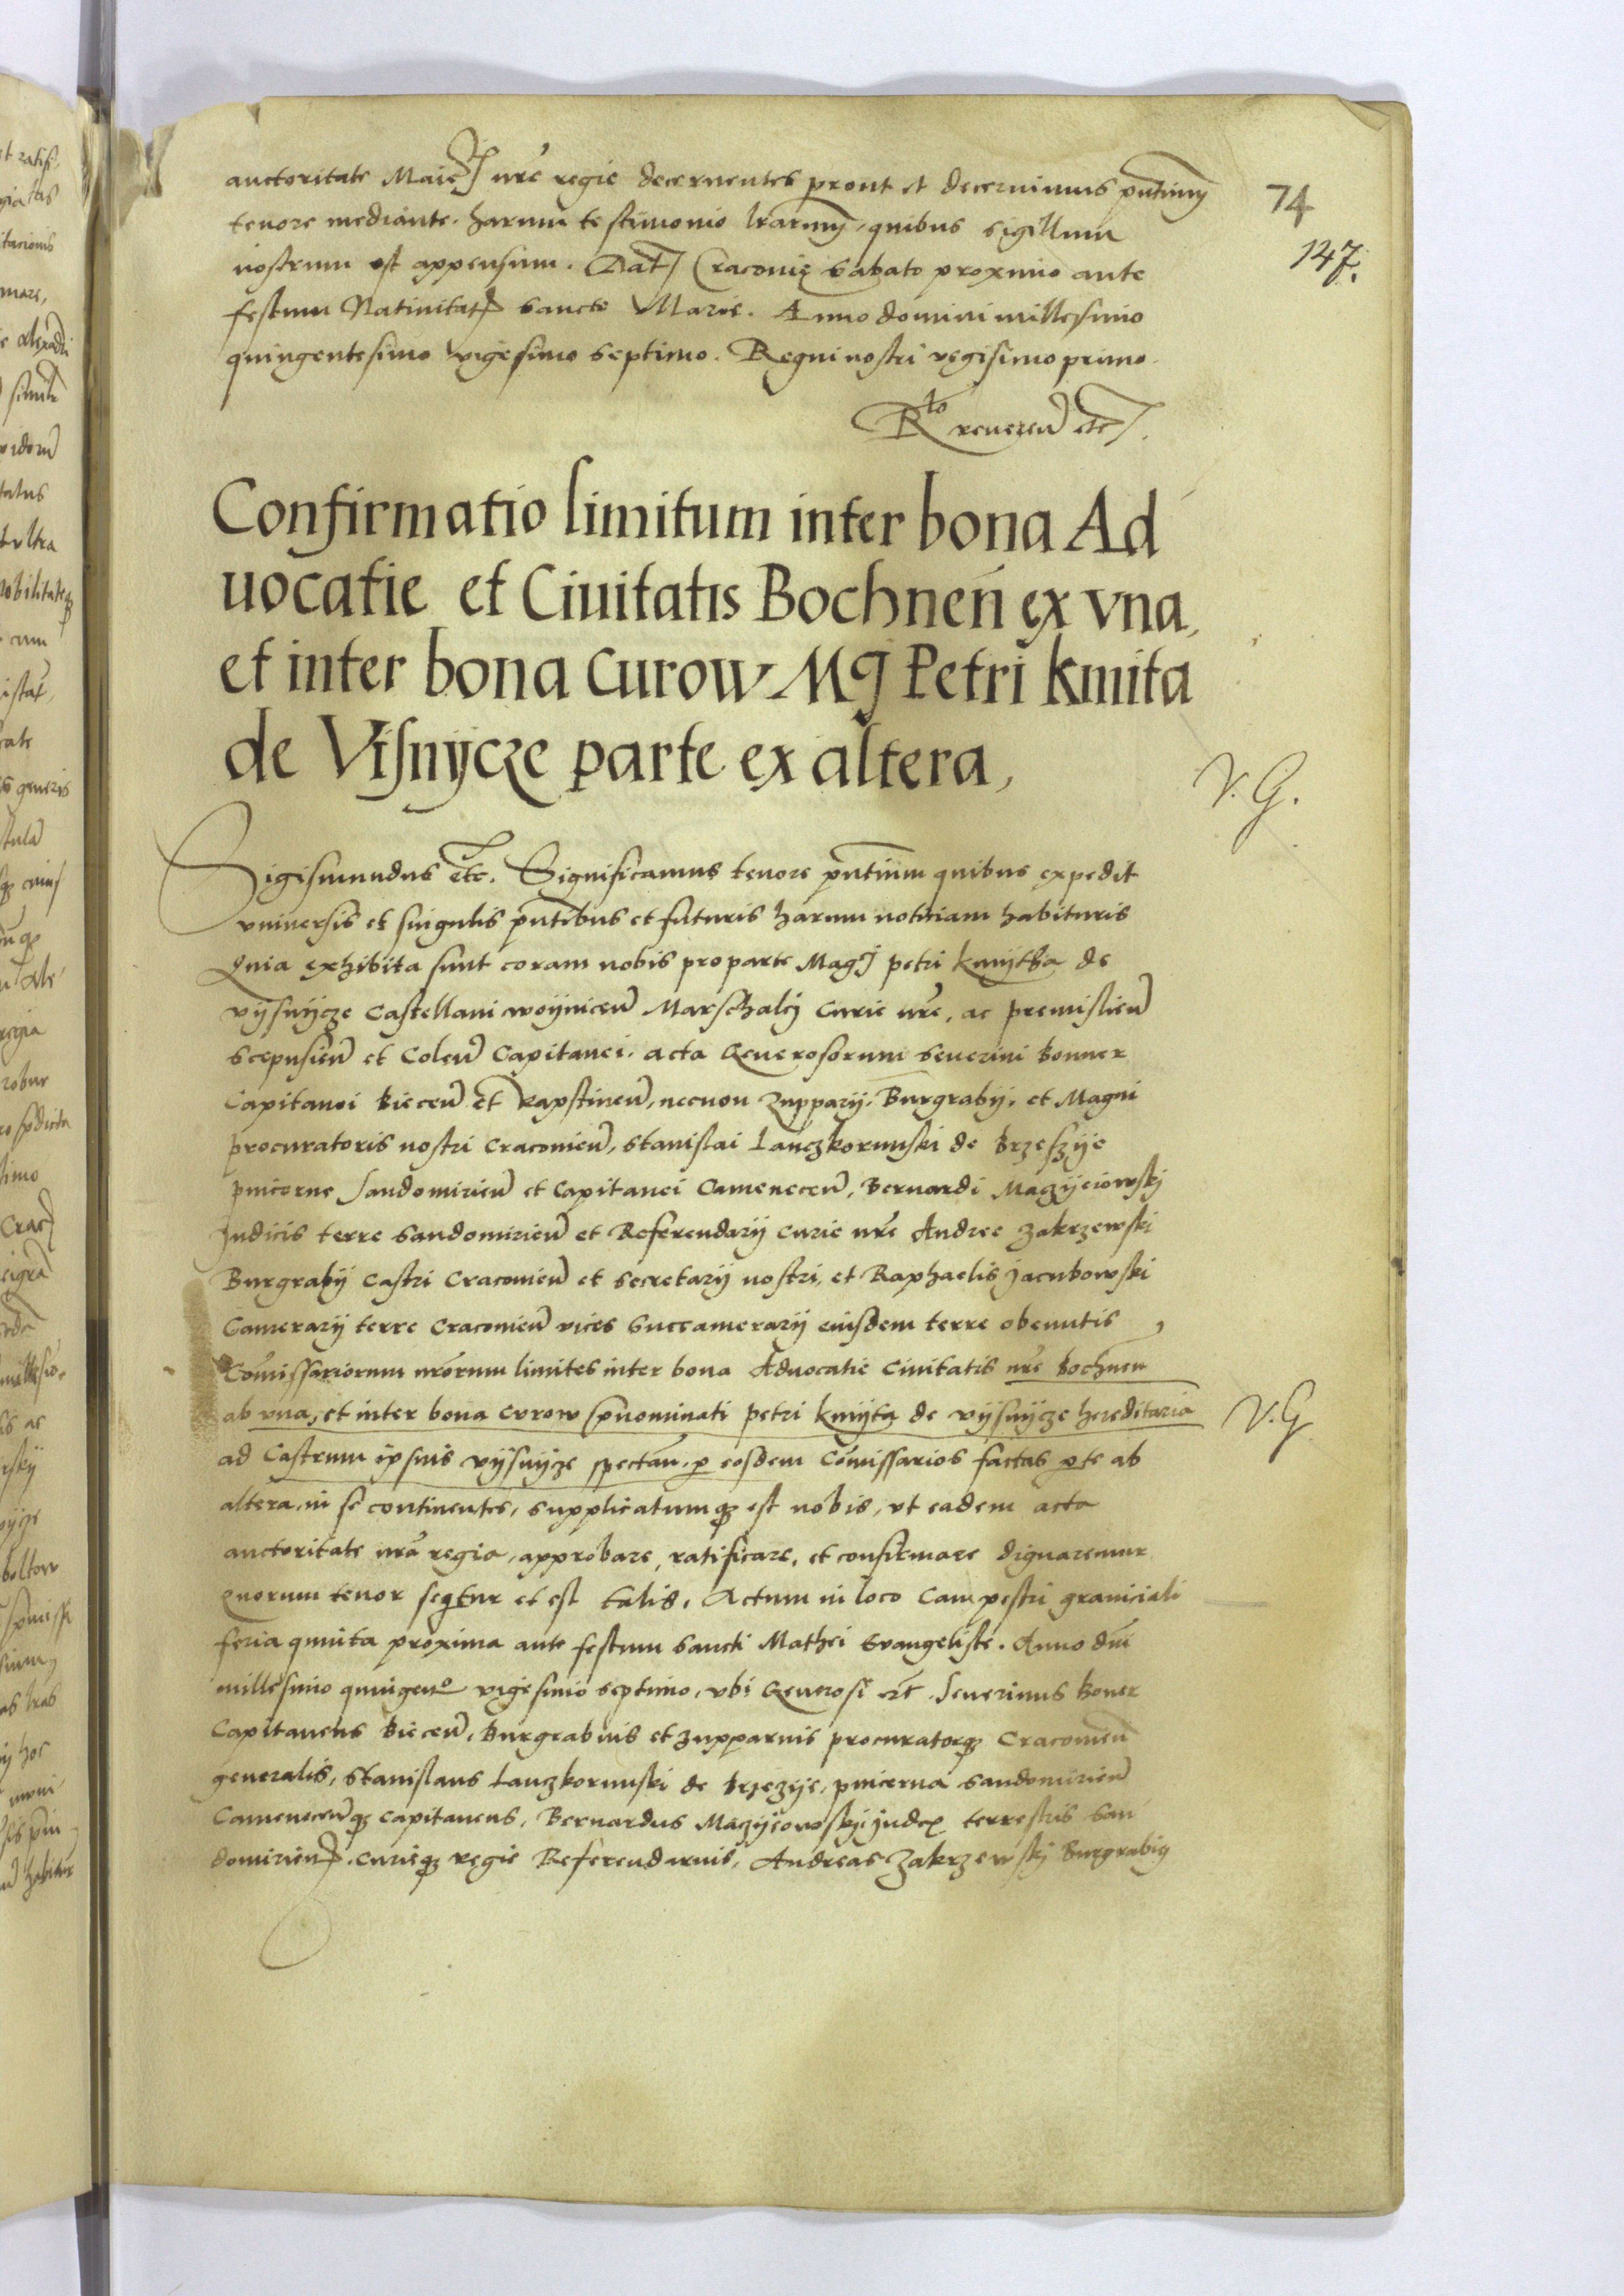 auctoritate Maiest nre regie decernentes prout et decernimus pntium
tenore mediante. harum testimonio lrarum, quibus sigillum
nostrum est appensum. Dat Cracouie sabato proximo ante
festum Natiuitatis sancte Marie. Anno domini millesimo
quingentesimo vigesimo septimo. Regni nostri vigesimo primo.
Rto reueren etc.
74
147.
Confirmatio limitum inter bona Ad
uocatie et Ciuitatis Bochnen ex vna,
et inter bona Curow Mgci Petri Kmita
de Visnÿcze parte ex altera,
V. G.
Sigismundus etc. Significamus tenore pntium quibus expedit
vniuersis et singulis pntibus et futuris harum notitiam habituris
Quia exhibita sunt coram nobis pro parte Magci petri kmÿtha de
vÿsnÿcze Castellani woÿnicen Marschalcj Curie nre, ac premislien
scepusien et Colen Capitanei. acta Generosorum Seuerini bonner
Capitanei biecen et Rapstinen, necnon zupparÿ. Burgrabÿ. et Magni
procuratoris nostri Cracouien, Stanislai Lanczkorunski de brzeszÿe
pincerne Sandomirien et Capitanei Camenecen, Bernardi Maczÿeiowskj
Judicis terre Sandomirien et Referendarÿ Curie nre Andree zakrzewski
Burgrabÿ Castri Cracouien et secretarÿ nostri, et Raphaelis Jacubowski
Camerarÿ terre Cracouien vices Succamerarÿ eiusdem terre obenutis,
Comissariorum nrorum limites inter bona Aduocatie Ciuitatis nre bochnen
ab vna, et inter bona Curow prenominati petri kmÿta de vÿsnÿcze hereditaria
V. G
ad Castrum ipsius vÿsnÿcze spectan. p eosdem Comissarios factas pte ab
altera, in se continentes, supplicatumque est nobis, vt eadem acta
auctoritate nra regia, approbare, ratificare, et confirmare dignaremur
Quorum tenor sequitur et est talis, Actum in loco Campestri graniciali
feria quinta proxima ante festum Sancti Mathei Euangeliste. Anno dni
millesimo quingeno vigesimo septimo, vbi Generosi etc. Seuerinus boner
Capitaneus biecen, burgrabius et zupparius procuratorque Cracouien
generalis, Stanislaus Lanczkorunski de brzezÿe, pincerna Sandomirien
Camenecenque Capitaneus, Bernardus Maczÿeiowskj Judex terrestris San
domirien. Curieque regie Referendarius, Andreas zakrzewskj Burgrabius